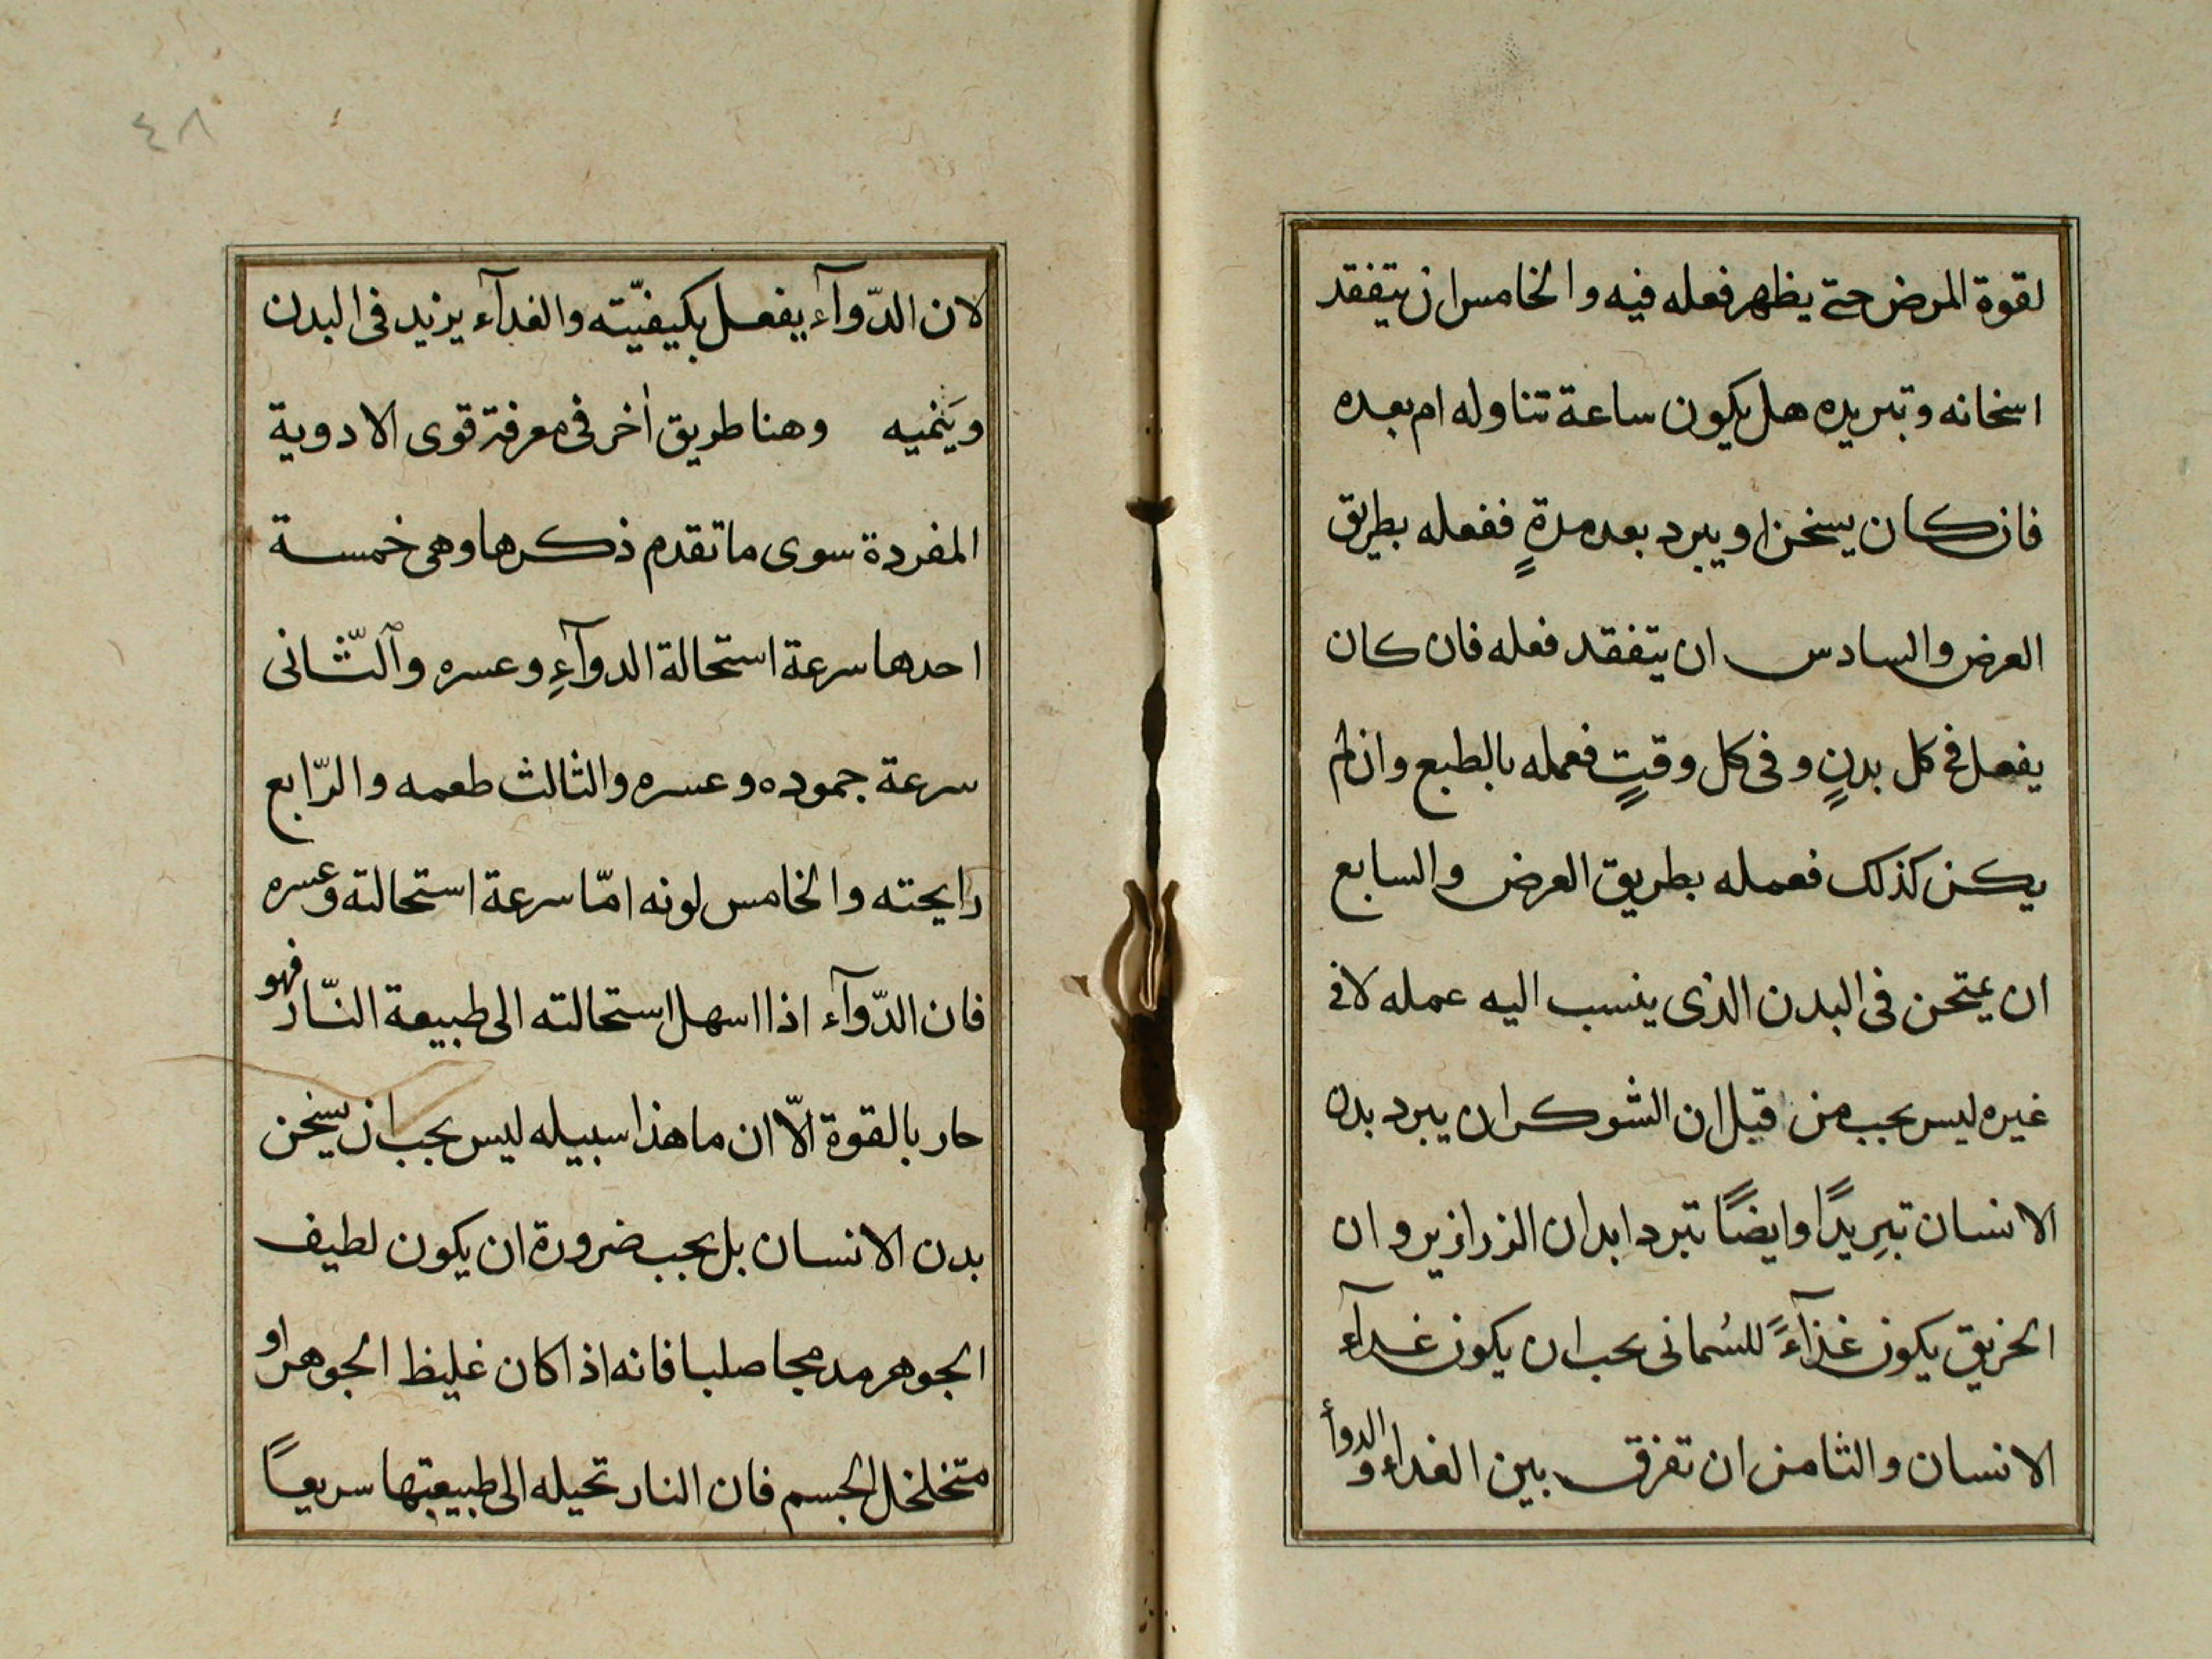 لقوة المرض حتى يظهر فعله فيه والخامس ان يتفقد
اسخانه وتبريده هل يكون ساعة تناوله ام بعده
فان كان يسخن او يبرد بعد مدةٍ ففعله بطريق
العرض والسادس ان يتفقد فعله فان كان
يفعل فى كل بدنٍ وفى كل وقتٍ فعمله بالطبع وان لم
يكن كذلك فعمله بطريق العرض والسابع
ان يمتحن فى البدن الذى ينسب اليه عمله لا فى
غيره ليس يجب من قبل ان الشوكران يبرد بدن
الانسان تبرِيدًا وايضًا تبرد ابدان الزرازير وان
الخربق يكون غذآءً للسُمانى يجب ان يكون غدآء
الانسان والثامن ان تفرق بين الغداء والدوأ
٤٨
لان الدّوآء يفعل بكيفيّته والغدآء يزيد فى البدن
ويَنميه وهنا طريق اٰخر فى معرفة قوى الادوية
المفردة سوى ما تقدم ذكرها وهى خمسة
احدها سرعة استحالة الدوآءِ وعسره وٱلثّانى
سرعة جموده وعسره والثالث طعمه والرّابع
رايحته والخامس لونه امّا سرعة استحالته وعسره
فان الدّوآء اذا اسهل استحالته الى طبيعة النّار فهو
حار بالقوة الّا ان ما هذا سبيله ليس يجب ان يسخن
بدن الانسان بل يجب ضرورة ان يكون لطيف
الجوهر مدمجا صلبا فانه اذا كان غليظ الجوهر او
متخلخل الجسم فان النار تحيله الى طبيعتها سريعًا